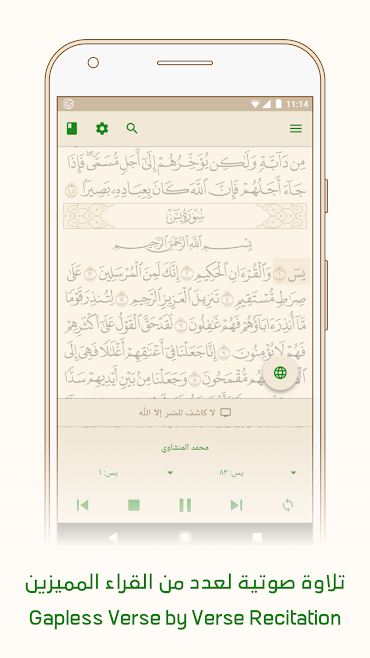 11:14
مِن دَآبَّةٍ وَلَٰكِن يُؤَخِّرُهُمْ إِلَىٰٓ أَجَلٍ مُّسَمًّى ۖ فَإِذَا
جَآءَ أَجَلُهُمْ فَإِنَّ ٱللَّهَ كَانَ بِعِبَادِهِۦ بَصِيرًا ٤٥
سُورَةُ يسٓ
بِسْمِ ٱللَّهِ ٱلرَّحْمَٰنِ ٱلرَّحِيمِ
يسٓ ١ وَٱلْقُرْءَانِ ٱلْحَكِيمِ ٢ إِنَّكَ لَمِنَ ٱلْمُرْسَلِينَ ٣ عَلَىٰ
صِرَٰطٍ مُّسْتَقِيمٍ ٤ تَنزِيلَ ٱلْعَزِيزِ ٱلرَّحِيمِ ٥ لِتُنذِرَ قَوْمًا
مَّآ أُنذِرَ ءَابَآؤُهُمْ فَهُمْ غَٰفِلُونَ ٦ لَقَدْ حَقَّ ٱلْقَوْلُ عَلَىٰٓ أَكْثَرِهِمْ
فَهُمْ لَا يُؤْمِنُونَ ٧ إِنَّا جَعَلْنَا فِىٓ أَعْنَٰقِهِمْ أَغْلَٰلًا فَهِىَ إِلَى
ٱلْأَذْقَانِ فَهُم مُّقْمَحُونَ ٨ وَجَعَلْنَا مِنۢ بَيْنِ أَيْدِيهِمْ سَدًّا
لا كاشف للضر إلا الله
محمد المنشاوي
يس: ٨٣
يس: ١
تلاوة صوتية لعدد من القراء المميزين
Gapless Verse by Verse Recitation